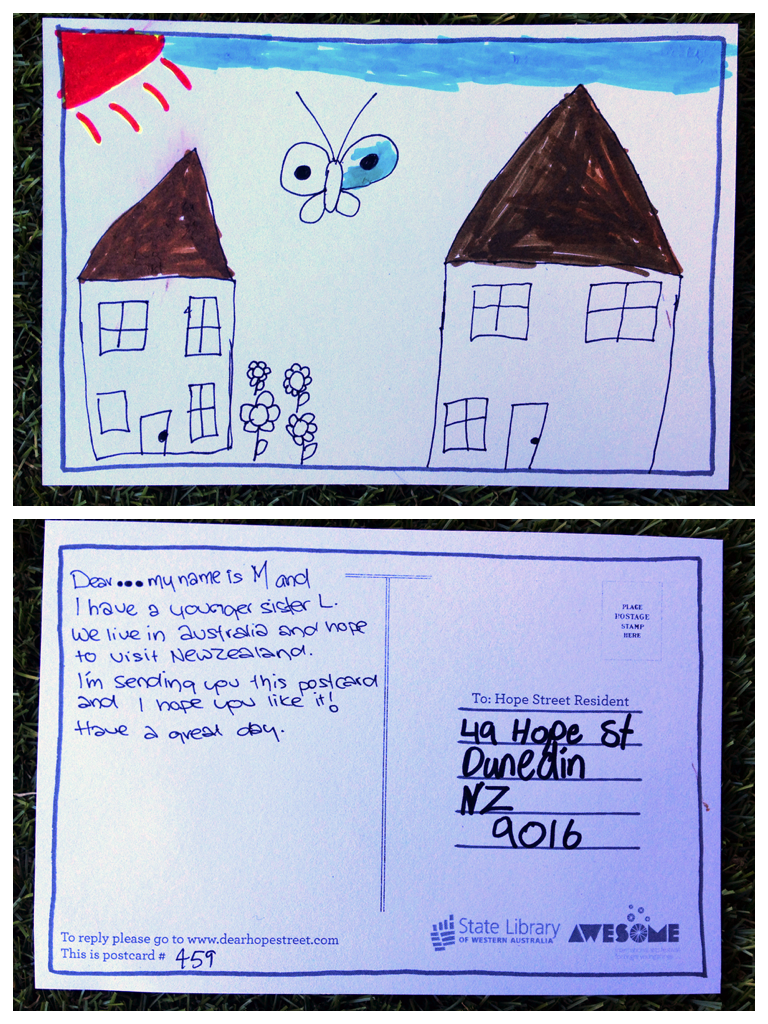 Dear... my name is M and
I have a younger sister L.
We live in australia and hope
to visit NewZealand.
I'm sending you this postcard
and I hope you like it!
Have a great day.
PLACE
POSTAGE
STAMP
HERE
To: Hope Street Resident
49 Hope St
Dunedin
NZ
9016
To reply please go to www.dearhopestreet.com
This is postcard # 459
State Library
OF WESTERN AUSTRALIA
AWESOME